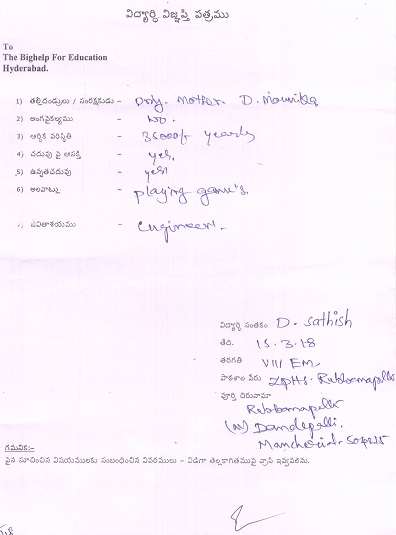 విద్యార్థి విజ్ఞప్తి పత్రము
To
The Bighelp For Education
Hyderabad.
1) తల్లిదండ్రులు / సంరక్షకుడు - Only. Mother D. Mounika
2) అంగవైకల్యము - No.
3) ఆర్థిక పరిస్థితి - 36000/- yearly
4) చదువు పై ఆసక్తి - yes.
5) ఉన్నతచదువు - yes
6) అలవాట్లు - playing game's.
7) జీవితాశయము - Engineer.
విద్యార్థి సంతకం D. Sathish
తేది. 15.3.18
తరగతి VIII EM
పాఠశాల పేరు ZPHS. Rebbanapalli
పూర్తి చిరునామా
Rebbanapalli
(M) Dandepalli.
Mancherial-
గమనిక:-
పైన సూచించిన విషయములకు సంబంధించిన వివరములు - విడిగా తెల్లకాగితముపై వ్రాసి ఇవ్వవలెను.